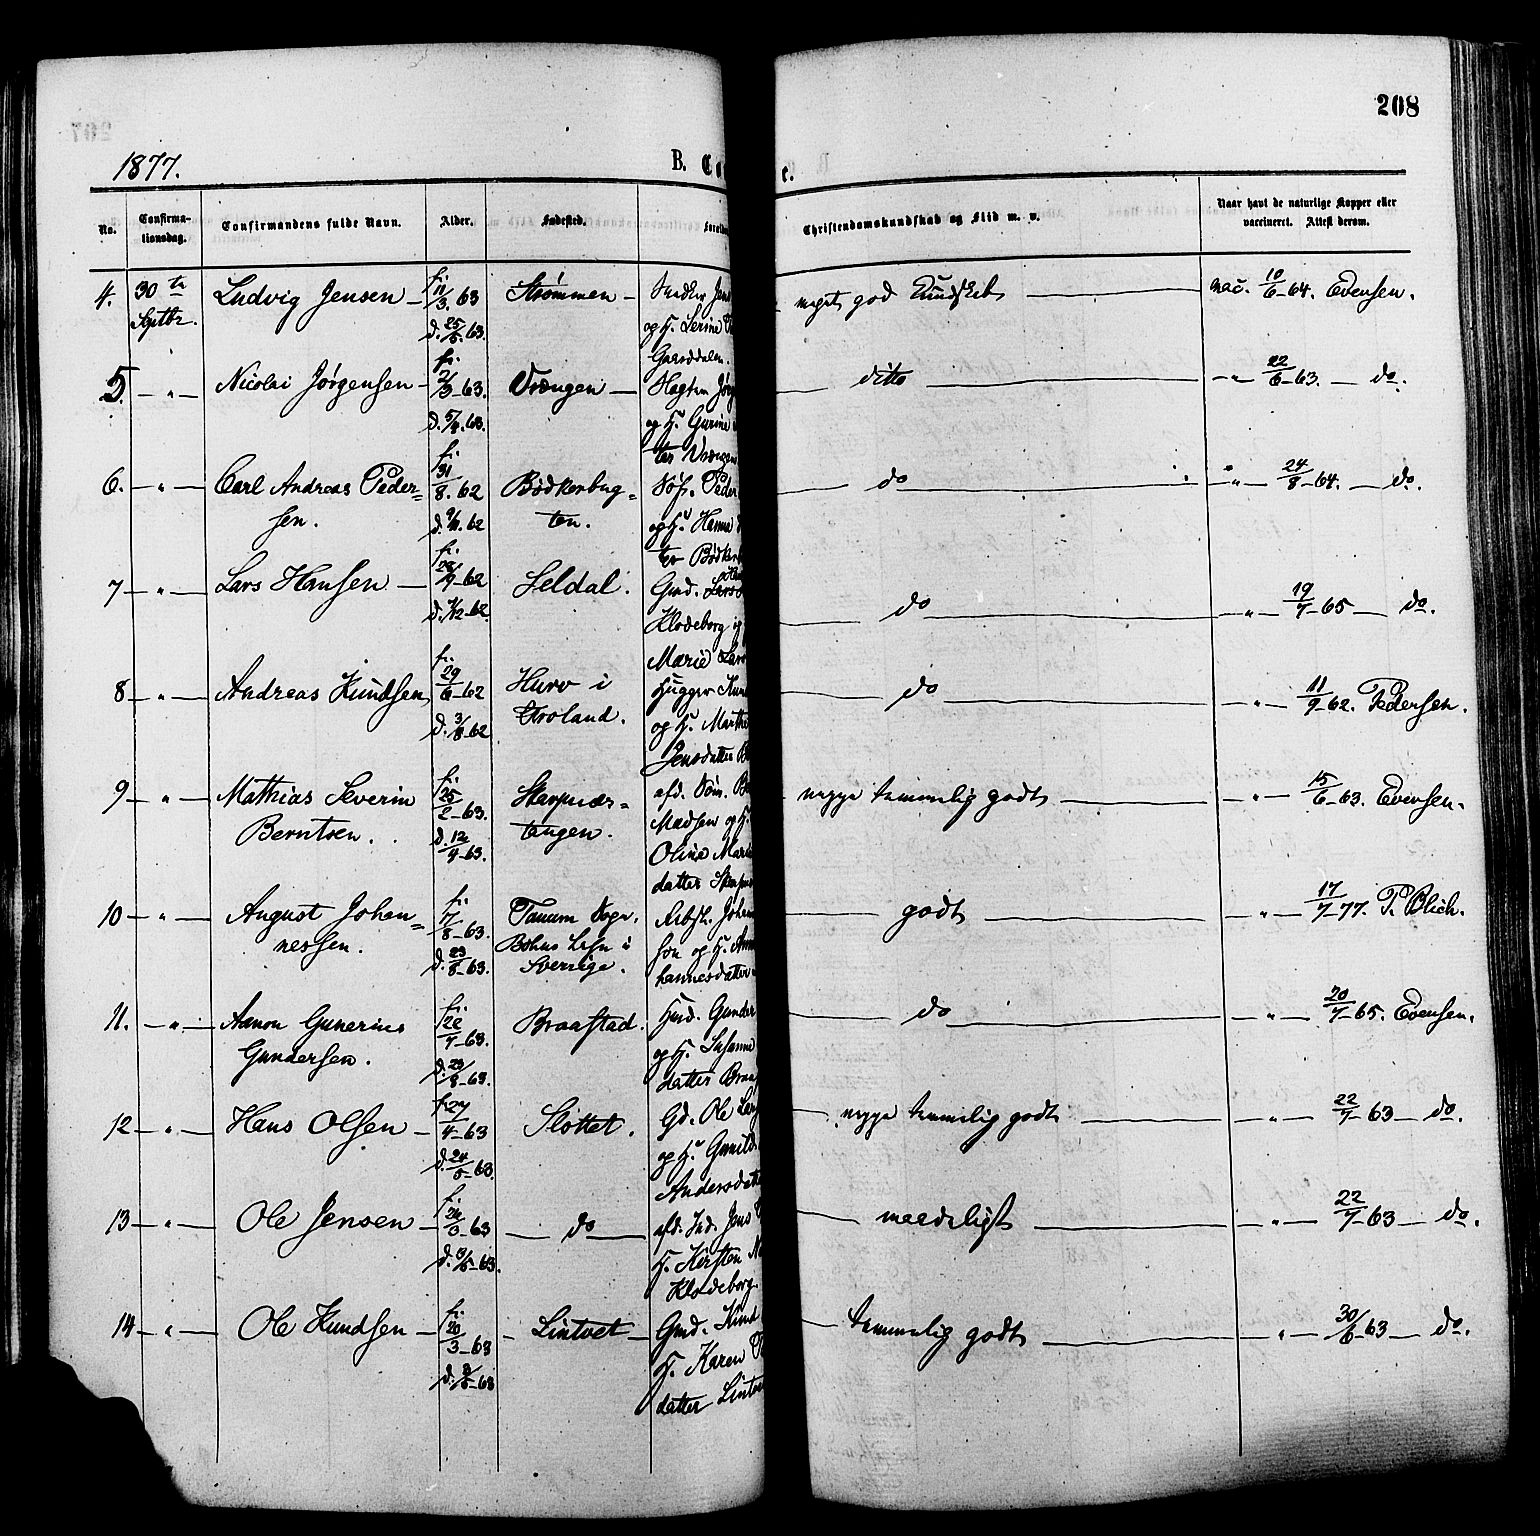 208
1877.
B. Co
e.
No.
Confirma-
tionsdag.
Confirmandens fulde Navn.
Alder.
Fødested.
Forældre
Christendomskundskab og Flid m. v.
Naar havt de naturlige Kopper eller
vaccineret. Attest derom.
4. 30te Septbr. Ludvig Jensen – f. 11/3. 63 d. 25/5. 63. Strømmen –
og H. Serine
meget god Kundskab vac. 10/6-64. Evensen.
5. – " – Nicolai Jørgensen – f. 63. d. 63. Vrængen –
og H. Gurine
ter Vrængen
ditto – " – 22/6-63. – do.
6. – " – Carl Andreas Peder=
sen. f. 31/8. 62 d. 9/11. 62 Bødkerbug=
ten. Søf. Peder
og H. Hanna
ter Bødker
do – " – 24/8-64. – do.
7 – " – Lars Hansen – f. 62 d. 62. Seldal. Gmd.
Klodeborg og
Marie Lars
do – " – 19/7-65 – do.
8 – " – Andreas Knudsen f. 29/6-62 d. 3/8-62 Hurv i
Froland. Hugger Knu
og H. Marthe
Jensdatter
do – " – 11/9-62. Pedersen.
9 – " – Mathias Severin
Berntsen. f. 25/2-63. d. 12/4-63. Skarpnær=
tangen. afd. Søm.
Madsen og H.
Oline Mar
datter
neppe temmelig godt – " – 15/6-63. Evensen.
10 – " – August Johan=
nessen. f. 7/8-63. d. 23/8-63. Tanum Sogn.
Bohus Lehn i
Sverrige. Arbsm. Johan
sen og H. Ann
hannesdatter
godt – " – 17/7-77. P. Blich.
11. – " – Aanon Gunerius
Gundersen. f. 63. d. 23/8-63. Braastad. Hmd. Gunder
og H. Susanne
datter Braa
do – " – 20/7-65. Evensen.
12 – " – Hans Olsen – f. 27/4-63 d. 24/5-63. Slottet. Gd. Ole
og H. Gunild
Andersdatte
neppe temmelig godt – " – 22/7-63 – do.
13 – " – Ole Jensen – f. 63 d. 63. – do – afd. Ind. Jens
H. Kirsten
Klodeborg.
maadeligt – " – 22/7-63 – do.
14 – " – Ole Knudsen – f. 20/3-63 d. 63 Lintvet – Gmd. Knud
H. Karen
datter Lintve
temmelig godt – " – 30/6-63 – do.